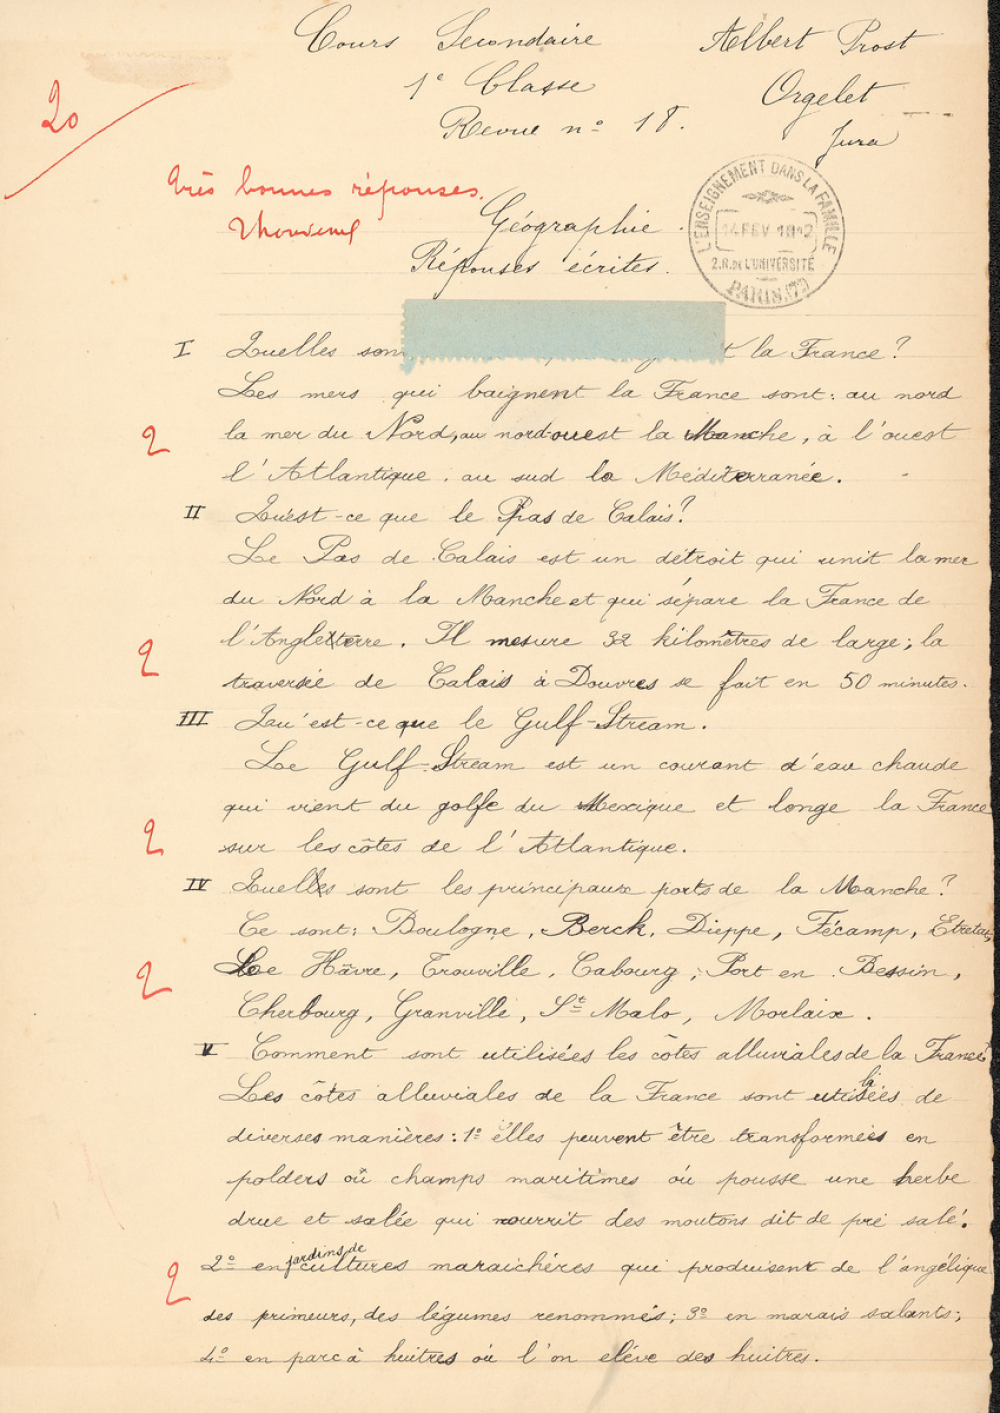 Cours Secondaire
Albert Prost
1e Classe
Orgelet
Revue nº 18.
Jura
20
Très bonnes réponses.
L'ENSEIGNEMENT DANS LA FAMILLE
14 FEV 1912
2.R. DE L'UNIVERSITÉ
PARIS (7e)
Géographie.
Réponses écrites.
I Quelles son t la France?
Les mers qui baignent la France sont: au nord
2 la mer du Nord, au nord-ouest la Manche, à l'ouest
l'Atlantique, au sud la Méditerranée.
II Qu'est-ce que le Pas de Calais?
Le Pas de Calais est un détroit qui unit la mer
du Nord à la Manche et qui sépare la France de
2 l'Angleterre. Il mesure 32 kilomètres de large; la
traversée de Calais à Douvres se fait en 50 minutes.
III Qu'est-ce que le Gulf-Stream.
Le Gulf-Stream est un courant d'eau chaude
qui vient du golfe du Mexique et longe la France
2 sur les côtes de l'Atlantique.
IV Quelles sont les principaux ports de la Manche?
Ce sont: Boulogne, Berck, Dieppe, Fécamp, Etretat,
2 Le Hâvre, Trouville, Cabourg, Port en Bessin,
Cherbourg, Granville, St Malo, Morlaix.
V Comment sont utilisées les côtes alluviales de la France?
Les côtes alluviales de la France sont utilisées de
diverses manières: 1º elles peuvent être transformées en
polders où champs maritimes où pousse une herbe
drue et salée qui nourrit des moutons dit de pré salé.
2 2º en jardins de cultures maraichères qui produisent de l'angélique
des primeurs, des légumes renommés; 3º en marais salants;
4º en parc à huitres où l'on elève des huitres.